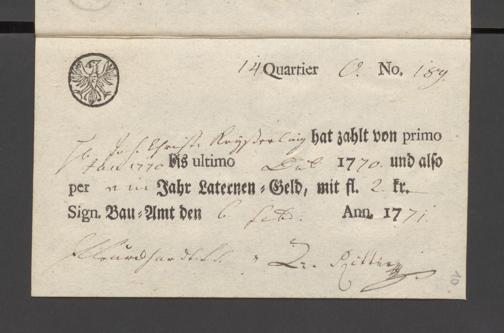 14 Quartier O. No. 189.
Joh. Christ. hat zahlt von primo
1770 bis ultimo Dec 1770. und also
per ein Jahr Laternen-Geld, mit fl. 2 kr.
Sign. Bau-Amt den 6 Feb. Ann. 1771.
10